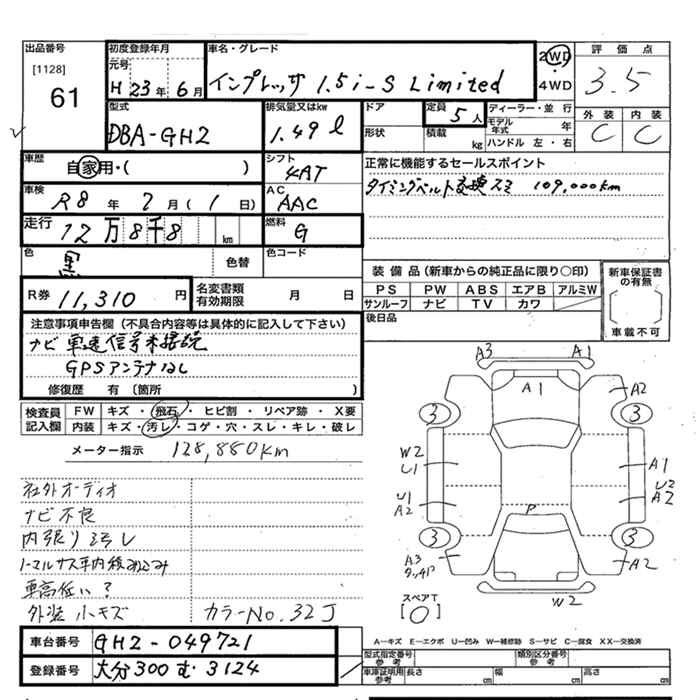 出品番号 初度登録年月 車名・グレード 2WD 評価点
[1128] 元号 インプレッサ 1.5i-S Limited ・4WD 3.5
61 H 23年 6月
型式 排気量又はkw ドア 定員 5人 ディーラー・並行 外装 内装
DBA-GH2 1.49ℓ 形状 積載 kg モデル年式 年 C C
ハンドル 左・右
車歴 自家用・( ) シフト 4AT 正常に機能するセールスポイント
車検 R8年 2月(1日) AC AAC タイミングベルト交換スミ 109,000km
走行 12万8千8 km 燃料 G
色 黒 色替 色コード
装備品(新車からの純正品に限り○印) 新車保証書の有無
R券 11,310円 名変書類有効期限 月 日 PS PW ABS エアB アルミW
サンルーフ ナビ TV カワ
後日品 車載不可
注意事項申告欄(不具合内容等は具体的に記入して下さい)
ナビ 車速信号未接続
GPSアンテナなし
修復歴 有〔箇所 〕
検査員記入欄 FW キズ・飛石・ヒビ割・リペア跡・X要
内装 キズ・汚レ・コゲ・穴・スレ・キレ・破レ
メーター指示 128,880km
社外オーディオ
ナビ不良
内張り汚レ
車高低い?
外装小キズ カラーNo.32J
A3 A1
A1 A2
3 3
W2 U1 A1
U1 A2 P U2 A2
3 3
A3 タッチP A2
W2
スペアT
[〇]
A―キズ E―エクボ U―凹み W―補修跡 S―サビ C―腐食 XX―交換済
車台番号 GH2-049721 型式指定番号 参考 類別区分番号 参考
登録番号 大分300む3124 車庫証明用 参考 長さ cm 幅 cm 高さ cm